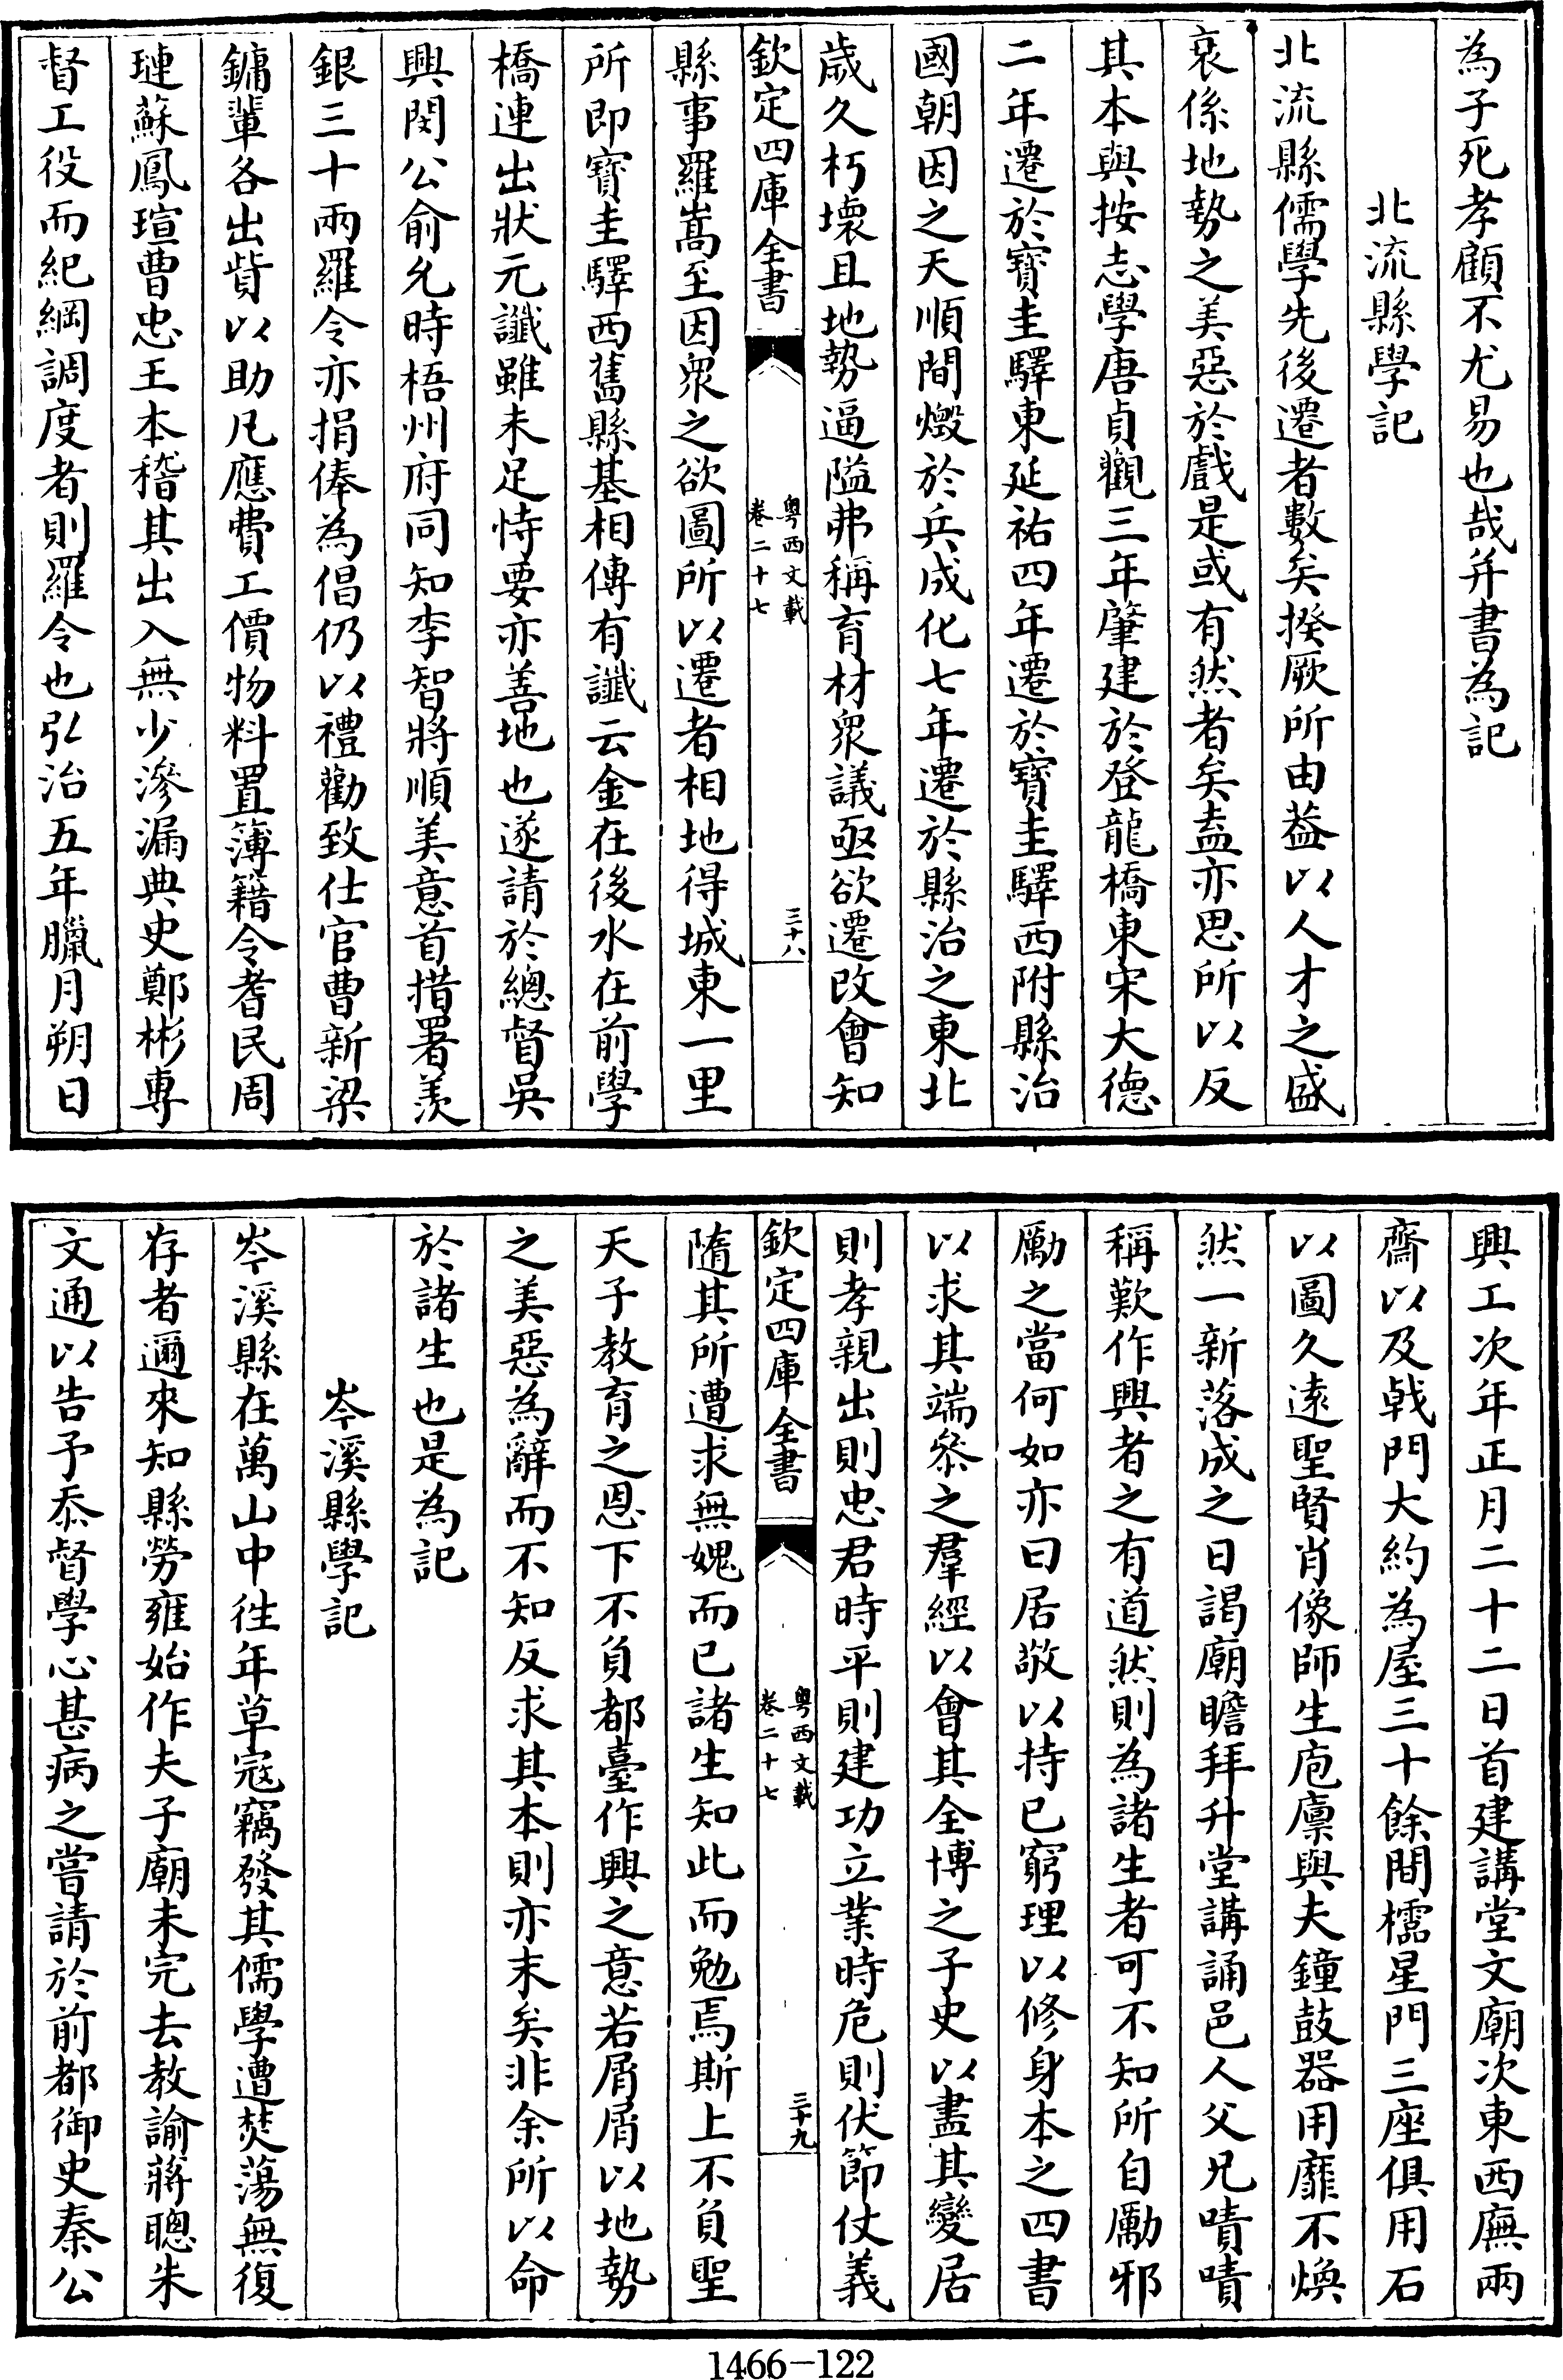 為子死孝顧不尤易也哉并書為記
北流縣學記
北流縣儒學先後遷者數矣揆厥所由葢以人才之盛
衰係地勢之美惡於戲是或有然者矣盍亦思所以反
其本與按志學唐貞觀三年肇建於登龍橋東宋大德
二年遷於寶圭驛東延祐四年遷於寶圭驛西附縣治
國朝因之天順間燬於兵成化七年遷於縣治之東北
歲久朽壞且地勢逼隘弗稱育材衆議亟欲遷改會知
欽定四庫全書
粤西文載
卷二十七
三十八
縣事羅嵩至因衆之欲圖所以遷者相地得城東一里
所即寶圭驛西舊縣基相傳有讖云金在後水在前學
橋連出狀元讖雖未足恃要亦善地也遂請於總督吳
興閔公俞允時梧州府同知李智將順美意首措署羨
銀三十兩羅令亦捐俸為倡仍以禮勸致仕官曹新梁
鏞輩各出貲以助凡應費工價物料置簿籍令耆民周
璉蘇鳳瑄曹忠王本稽其出入無少滲漏典史鄭彬專
督工役而紀綱調度者則羅令也弘治五年臘月朔日
興工次年正月二十二日首建講堂文廟次東西廡兩
齋以及㦸門大約為屋三十餘間櫺星門三座俱用石
以圖久遠聖賢肖像師生庖廩與夫鐘鼓器用靡不煥
然一新落成之日謁廟瞻拜升堂講誦邑人父兄嘖嘖
稱歎作興者之有道然則為諸生者可不知所自勵邪
勵之當何如亦曰居敬以持已窮理以修身本之四書
以求其端叅之羣經以會其全博之子史以盡其變居
則孝親出則忠君時平則建功立業時危則伏節仗義
欽定四庫全書
粤西文載
卷二十七
三十九
隨其所遭求無媿而已諸生知此而勉焉斯上不負聖
天子教育之恩下不負都臺作興之意若屑屑以地勢
之美惡為辭而不知反求其本則亦末矣非余所以命
於諸生也是為記
岑溪縣學記
岑溪縣在萬山中徃年草寇竊發其儒學遭焚蕩無復
存者邇來知縣勞雍始作夫子廟未完去教諭蔣聰朱
文通以告予忝督學心甚病之嘗請於前都御史秦公
1466-122